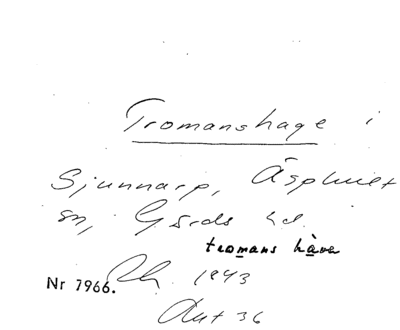 Tromanshage i
Sjunnarp, Äsphult
sn, Gärds hd.
tromans håva
Nr 7966. 1843
Ant 36